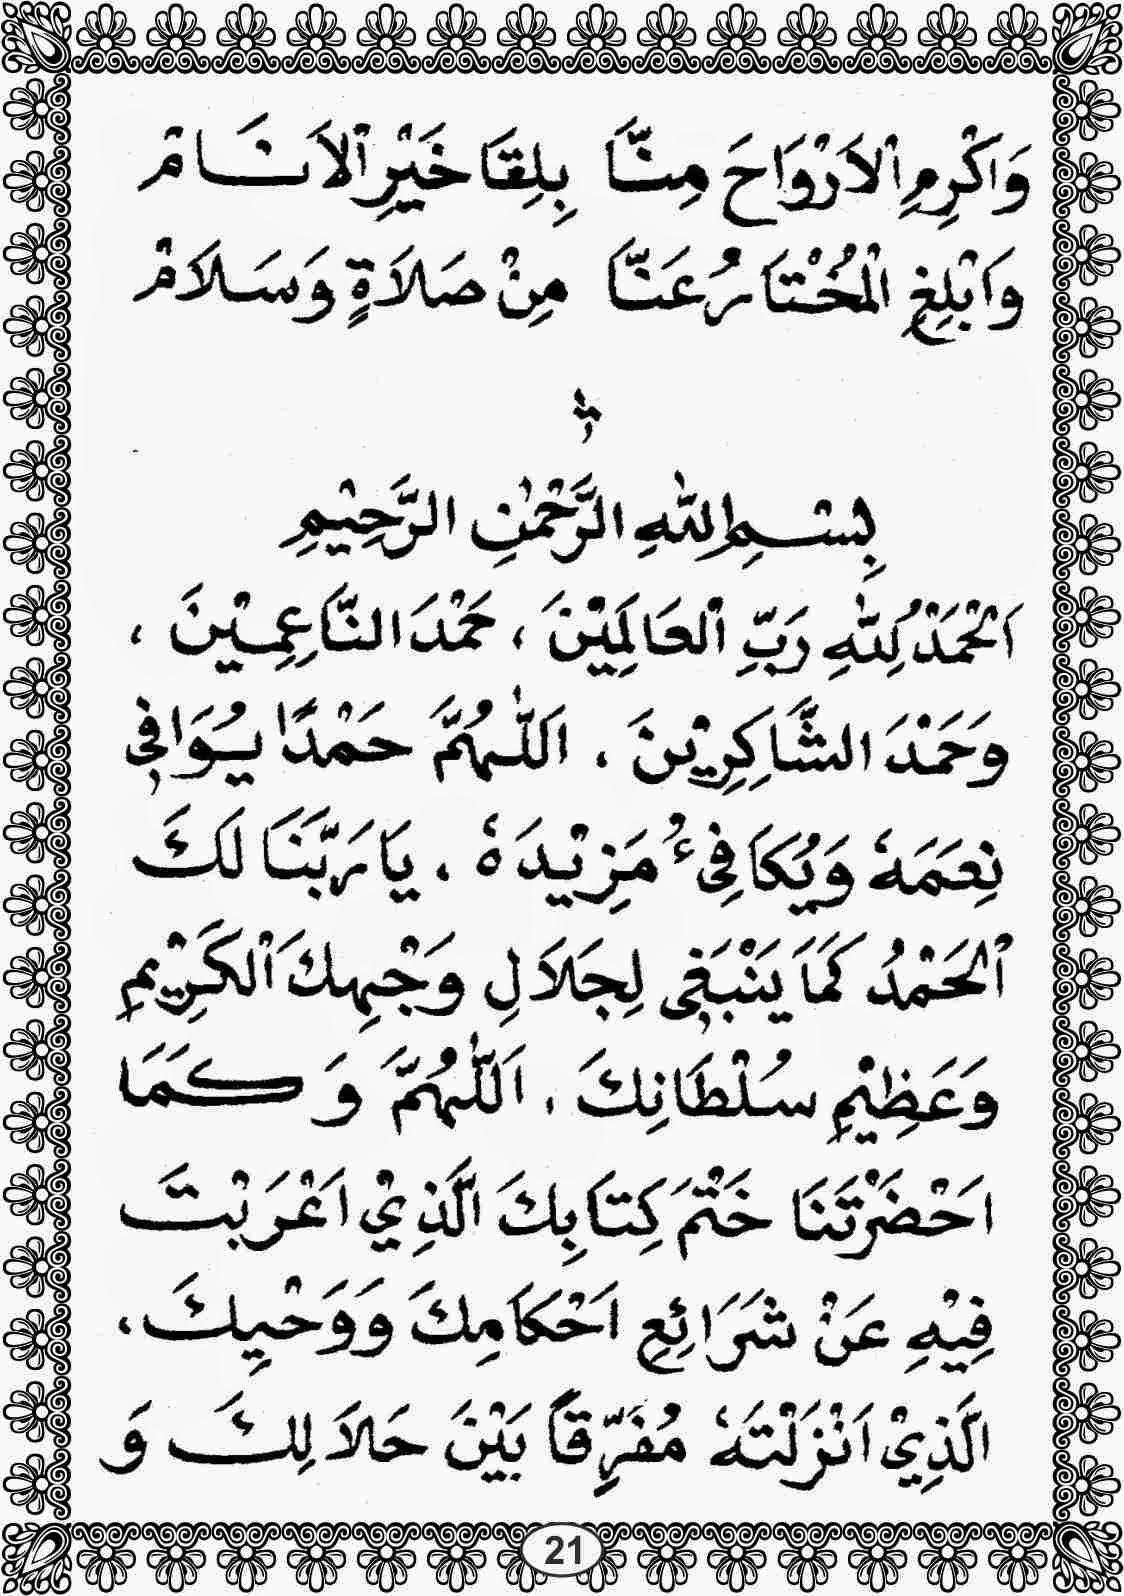 وَاَكْرِمِ الْاَرْوَاحَ مِنَّا بِلِقَا خَيْرِ الْاَنَامْ
وَاَبْلِغِ الْمُخْتَارُ عَنَّا مِنْ صَلَاةٍ وَسَلَامْ
بِسْمِ اللهِ الرَّحْمٰنِ الرَّحِيْمِ
اَلْحَمْدُ لِلّٰهِ رَبِّ الْعَالَمِيْنَ ، حَمْدَ النَّاعِمِيْنَ ،
وَحَمْدَ الشَّاكِرِيْنَ ، اَللّٰهُمَّ حَمْدًا يُوَافِي
نِعَمَهٗ وَيُكَافِئُ مَزِيْدَهٗ ، يَا رَبَّنَا لَكَ
الْحَمْدُ كَمَا يَنْبَغِي لِجَلَالِ وَجْهِكَ الْكَرِيْمِ
وَعَظِيْمِ سُلْطَانِكَ ، اَللّٰهُمَّ وَكَمَا
اَحْضَرْتَنَا خَتْمَ كِتَابِكَ الَّذِيْ اَعْرَبْتَ
فِيْهِ عَنْ شَرَائِعِ اَحْكَامِكَ وَوَحْيِكَ ،
الَّذِيْ اَنْزَلْتَهٗ مُفَرِّقًا بَيْنَ حَلَالِكَ وَ
21